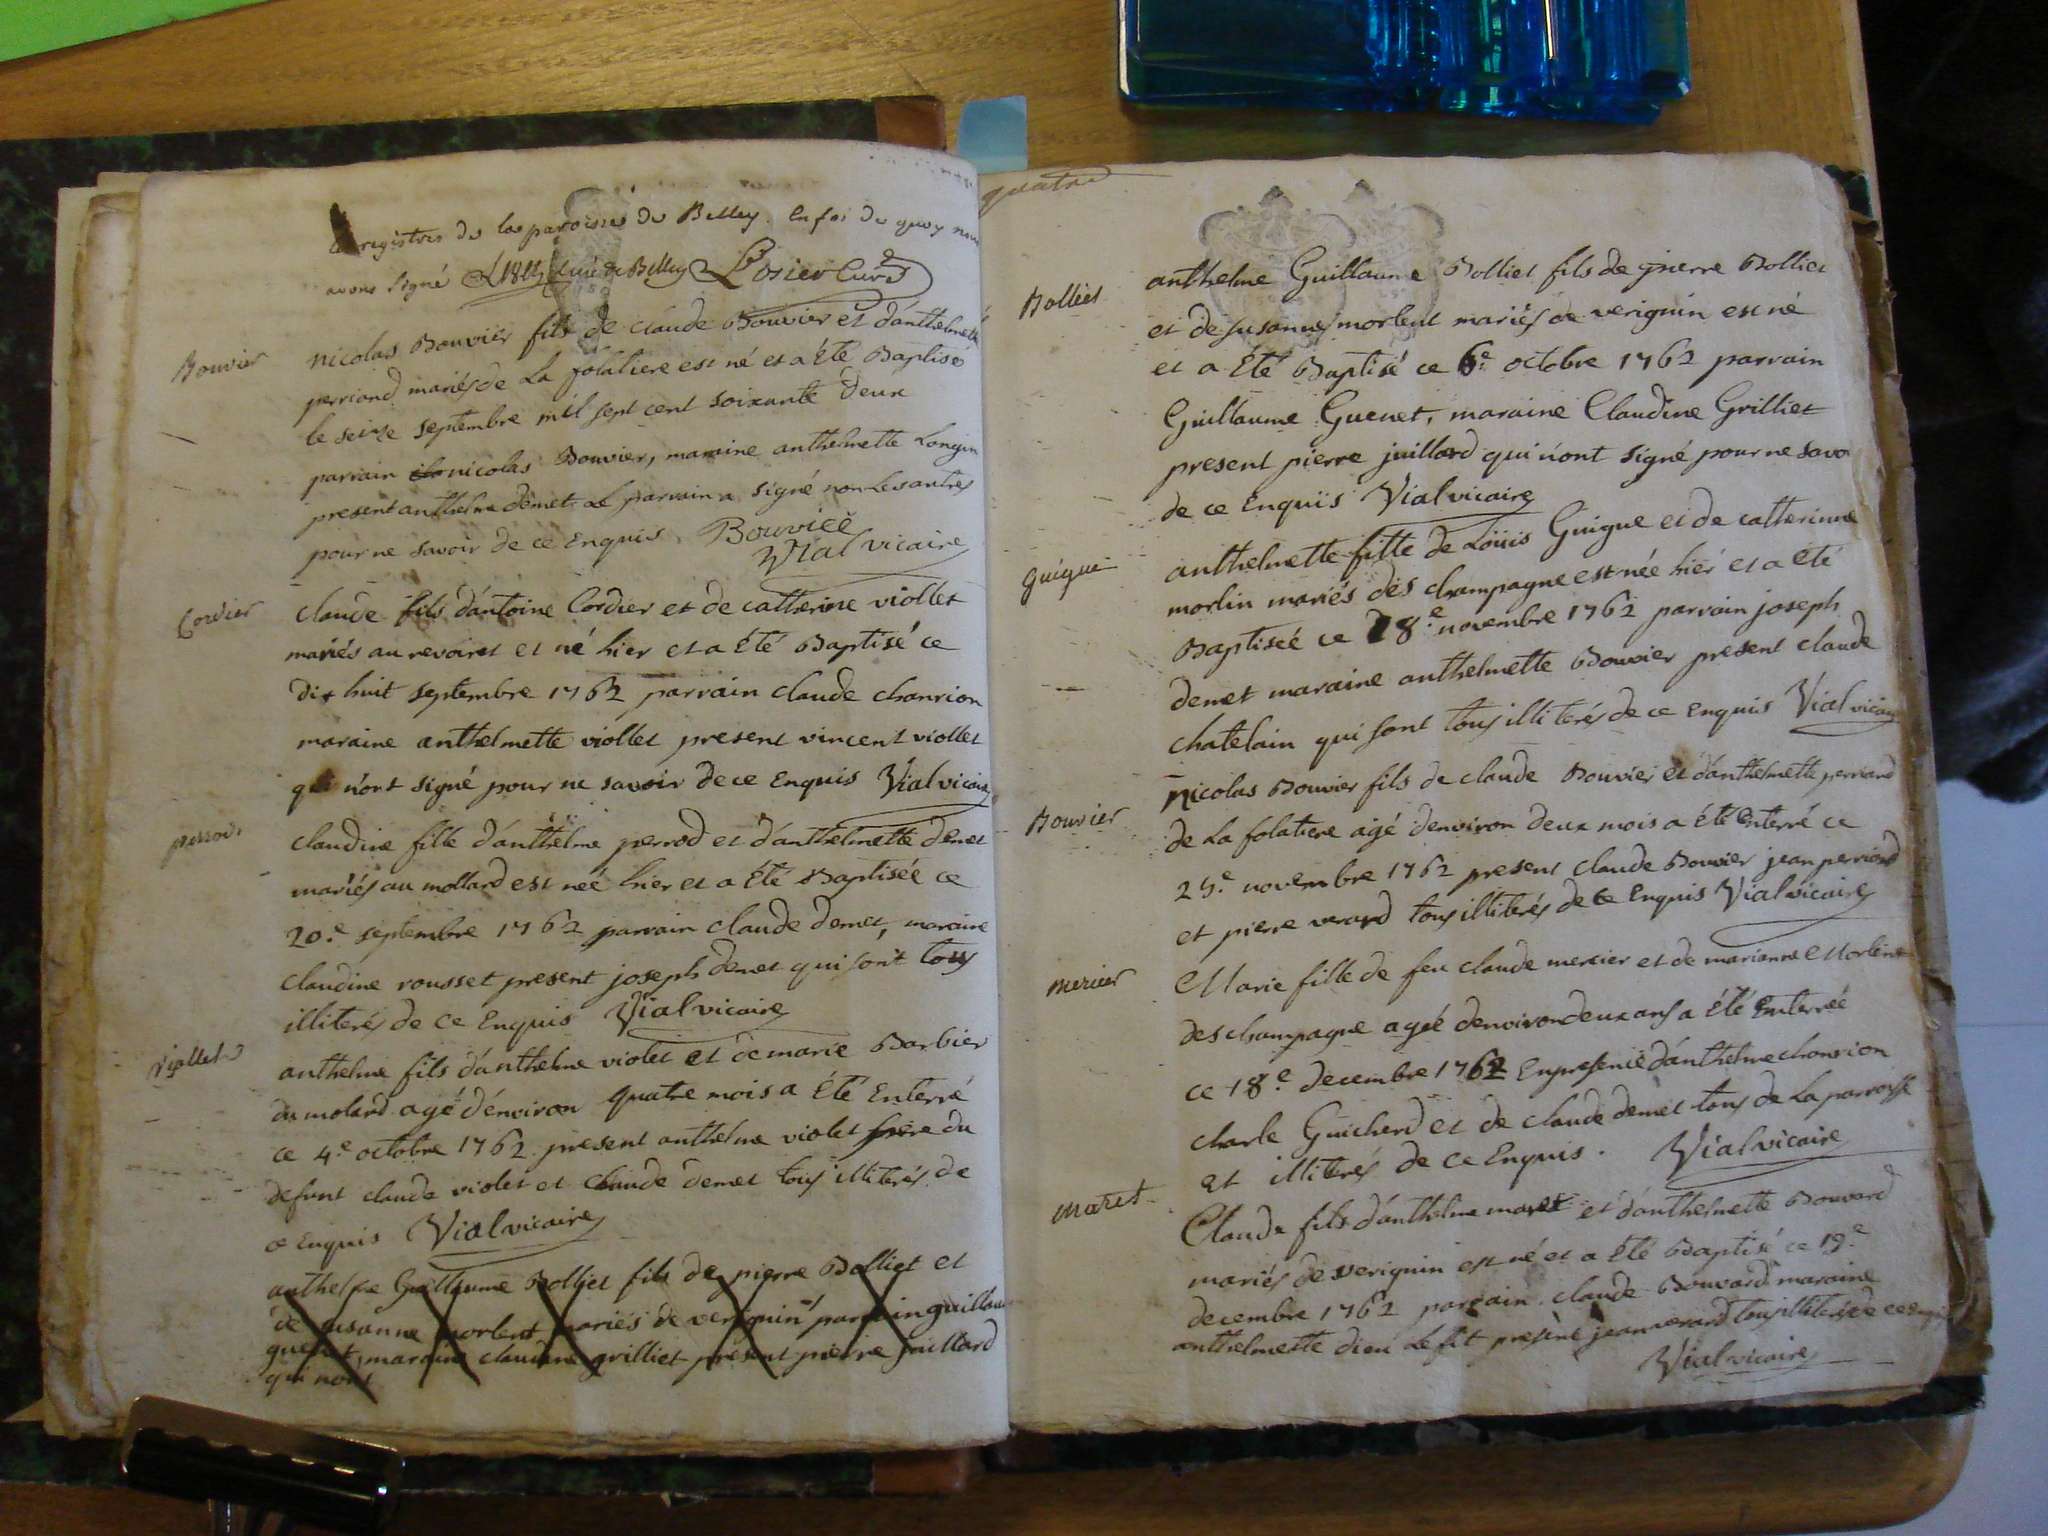 les registres de las paroisses de Belley. En foi de quoy nous
avons signé curé de Belley Losier Curé
Bouvier
nicolas Bouvier fils de claude Bouvier et d'anthelmette
perriand mariés de La folatiere est né et a été Baptisé
le seize septembre mil sept cent soixante deux
parrain nicolas Bouvier, maraine anthelmette Longin
present anthelme demet Le parrain a signé non Les autres
pour ne savoir de ce Enquis Bouvier
Vial vicaire
Cordier
claude fils d'antoine Cordier et de catherine viollet
mariés au revoiret et né hier et a été Baptisé ce
dix huit septembre 1762 parrain claude chanrion
maraine anthelmette viollet present vincent viollet
qui n'ont signé pour ne savoir de ce Enquis Vial vicaire
perrod
claudine fille d'anthelme perrod et d'anthelmette demet
mariés au mollard est neé hier et a été Baptisée ce
20.e septembre 1762 parrain claude demet, maraine
claudine rousset present joseph demet qui sont tous
illiterés de ce Enquis Vial vicaire
Viollet
anthelme fils d'anthelme violet et de marie Barbier
du molard agé d'environ quatre mois a été Enterré
ce 4.e octobre 1762 present anthelme violet frere du
defunt claude violet et claude demet tous illiterés de
ce Enquis Vial vicaire
anthelme Guillaume Bolliet fils de pierre Bolliet et
de susanne morlent mariés de veriguin parrain guillaume
guenet, maraine claudine grilliet présent pierre juillard
qui n'ont
quatre
Bolliet
anthelme Guillaume Bolliet fils de pierre Bolliet
et de susanne morlent mariés de veriguin est né
et a été Baptisé ce 6.e octobre 1762 parrain
Guillaume Guenet, maraine Claudine Grilliet
present pierre juillard qui n'ont signé pour ne savoir
de ce Enquis Vial vicaire
Guigue
anthelmette fille de Loüis Guigue et de catherinne
morlin mariés des champagne est née hiér et a été
Baptiseé ce 8.e novembre 1762 parrain joseph
demet maraine anthelmette Bouvier present claude
chatelain qui sont tous illiterés de ce Enquis Vial vicaire
Bouvier
Nicolas Bouvier fils de claude Bouvier et d'anthelmette perriand
de La folatiere agé d'environ deux mois a été Enterré ce
25.e novembre 1762 present claude Bouvier jean perriand
et pierre verard tous illiterés de ce Enquis Vial vicaire
mercier
Marie fille de feu claude mercier et de marianne Morlin
des champagne ageé d'environ deux ans a été Enterreé
ce 18.e decembre 1762 En presence d'anthelme chanrion
charle Guicherd et de claude demet tous de La parroisse
et illiterés de ce Enquis. Vial vicaire
maret
Claude fils d'anthelme maret et d'anthelmette Bouvard
mariés de veriguin est né et a été Baptisé ce 19.e
decembre 1762 parrain claude Bouvard maraine
anthelmette dieu Le fit present jean verard tous illiterés de ce Enquis
Vial vicaire